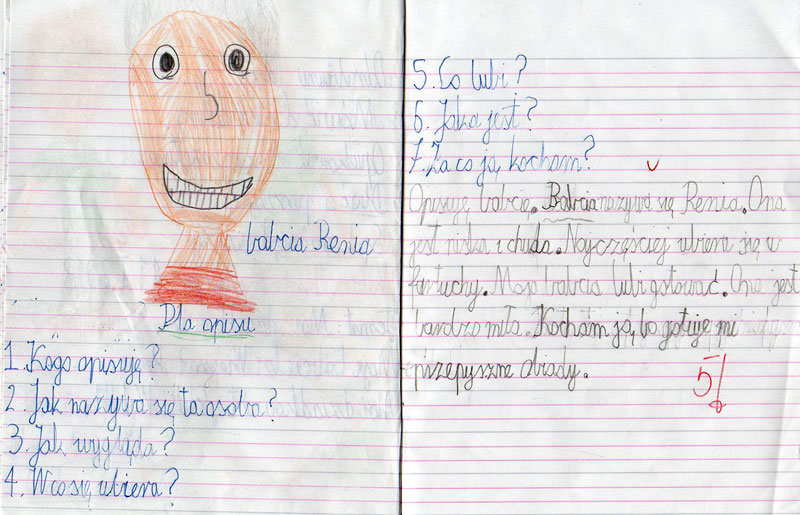 babcia Renia
Plan opisu
1. Kogo opisuję?
2. Jak nazywa się ta osoba?
3. Jak wygląda?
4. W co się ubiera?
5. Co lubi?
6. Jaka jest?
7. Za co ją kocham?
Opisuję babcię. Babcia nazywa się Renia. Ona
jest niska i chuda. Najczęściej ubiera się w
fartuchy. Moja babcia lubi gotować. Ona jest
bardzo miła. Kocham ją, bo gotuje mi
przepyszne obiady.
5